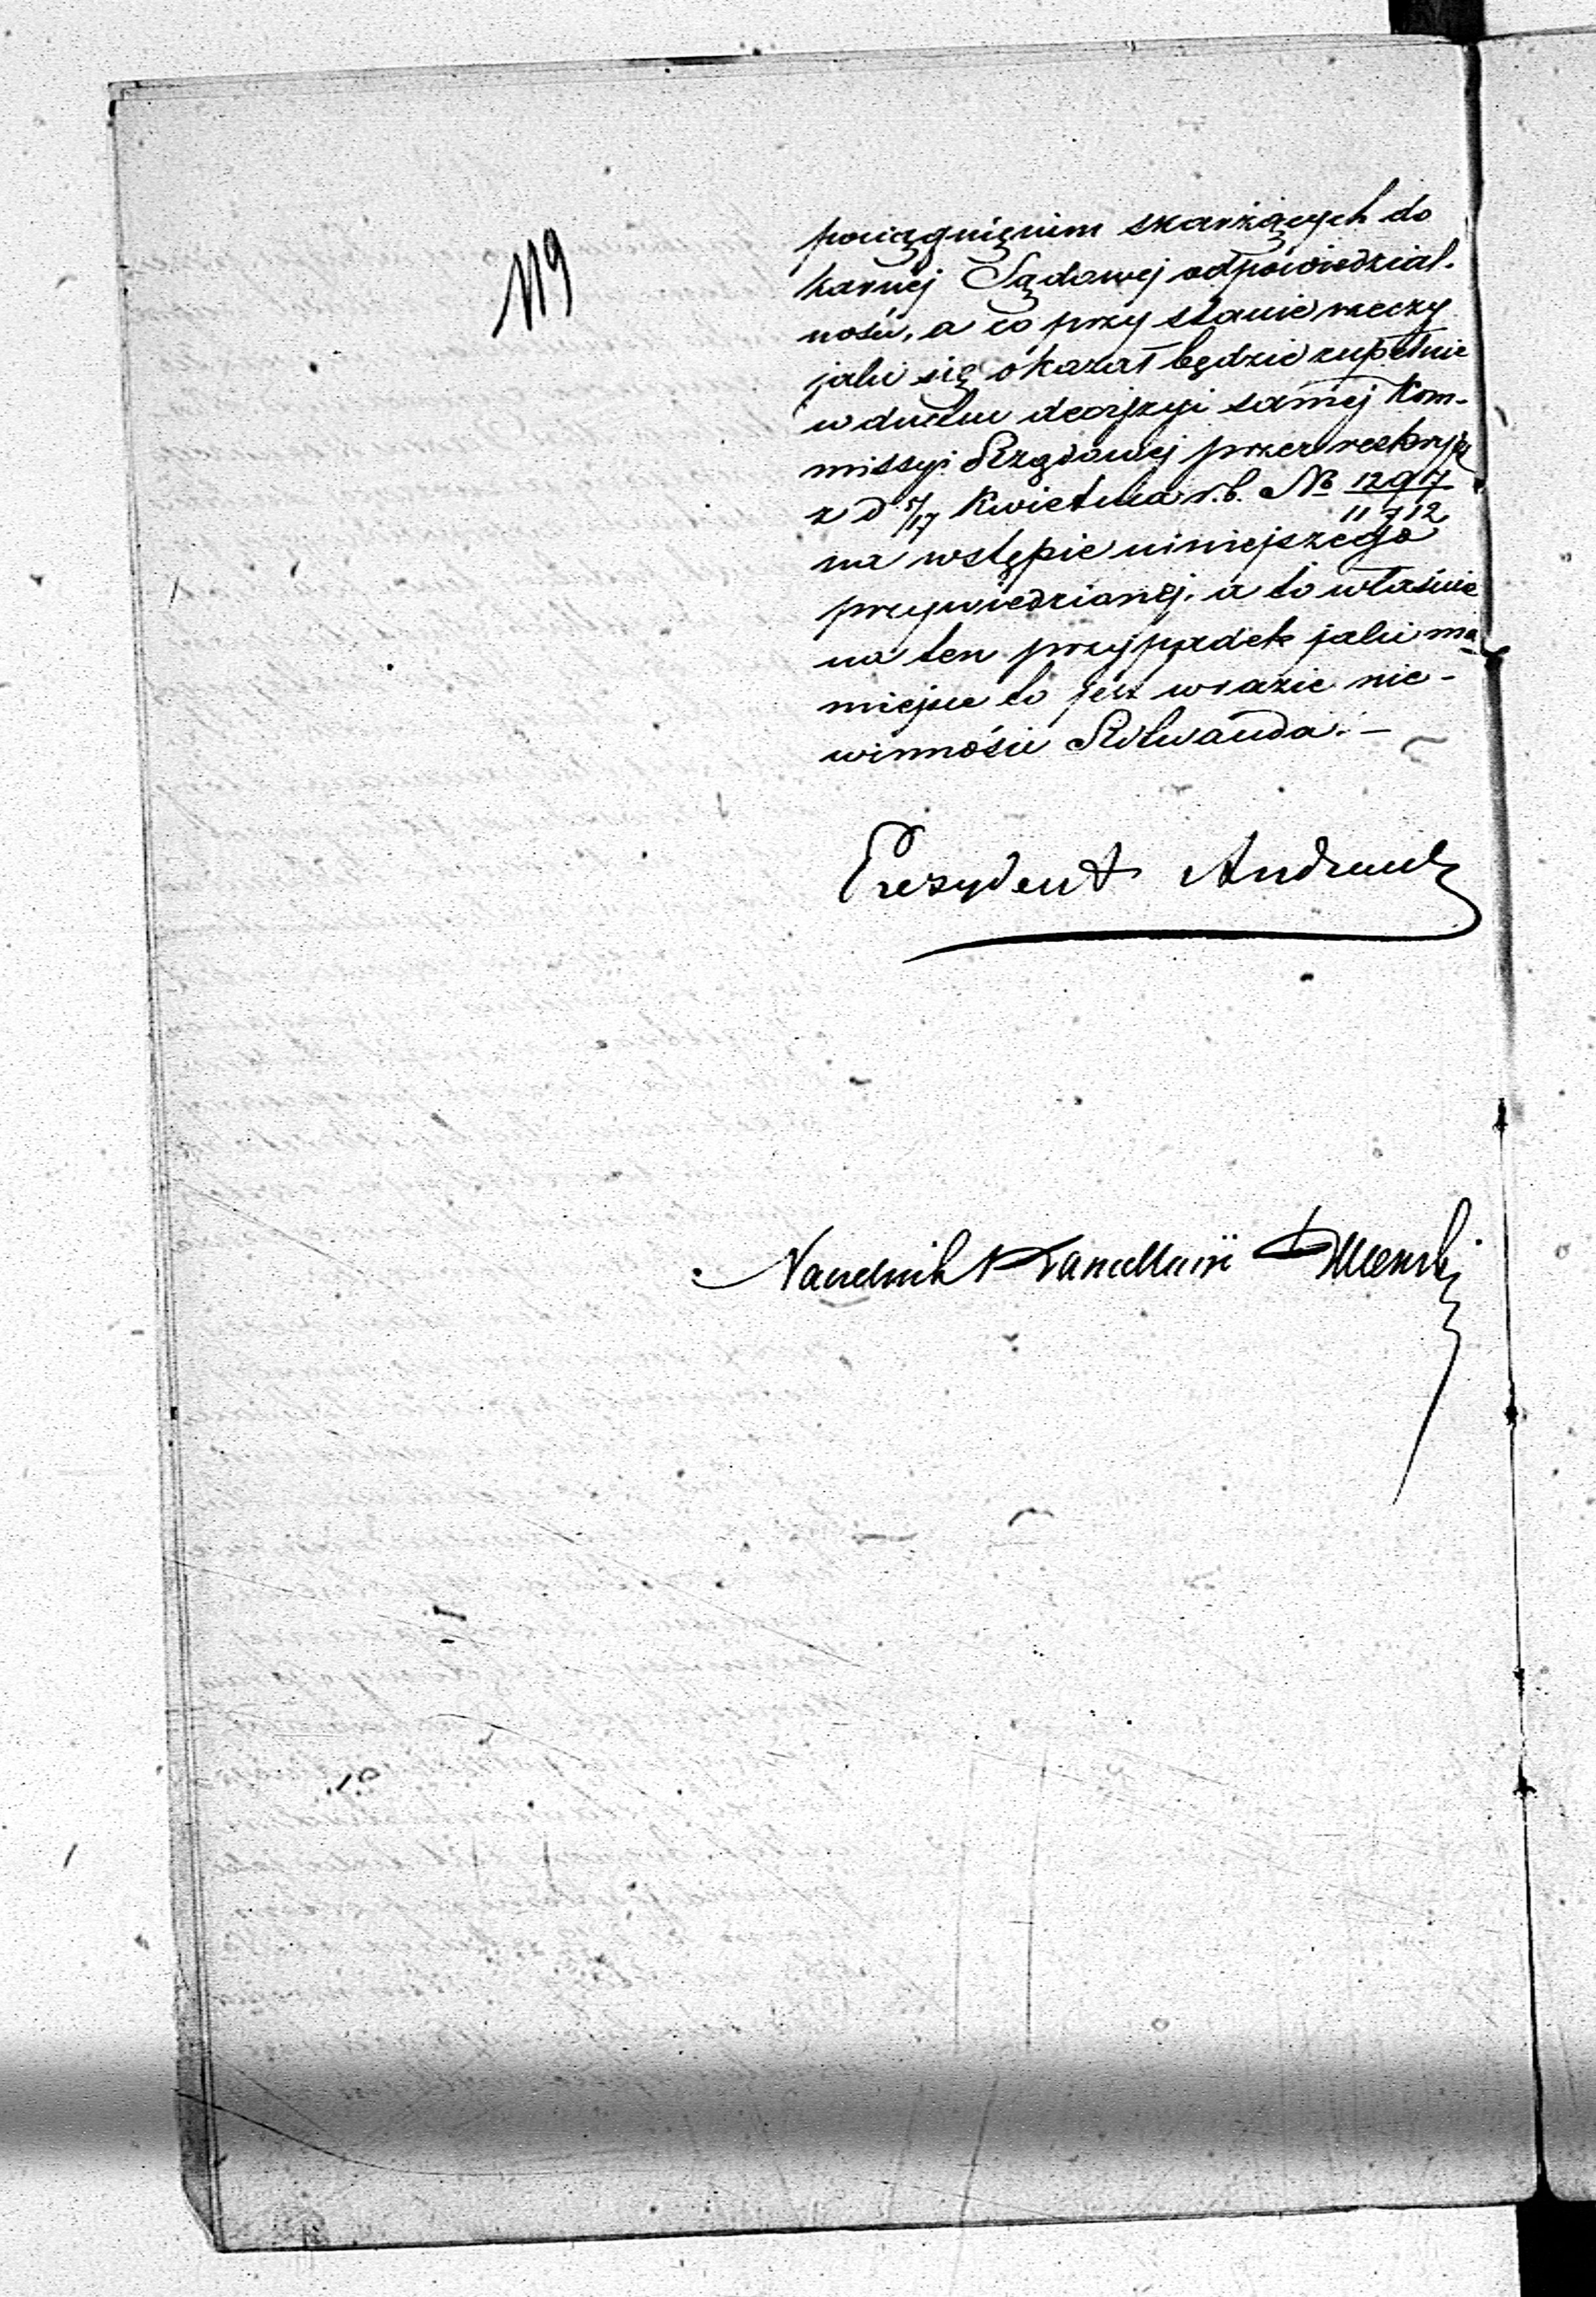 119
pociągnięciem skarżących do
karnej Sądowej odpowiedzial-
ności, a co przy stanie rzeczy
jaki się okazał będzie zupełnie
w duchu decyzyi samej Kom-
missyi Rządowej przez reskrypt
z d 5/17 Kwietnia r.b. No 12917/11712
na wstępie niniejszego
przywiedzionej, a to właśnie
na ten przypadek jaki ma
miejsce to jest w razie nie-
winności
Prezydent
Naczelnik Kancellarii